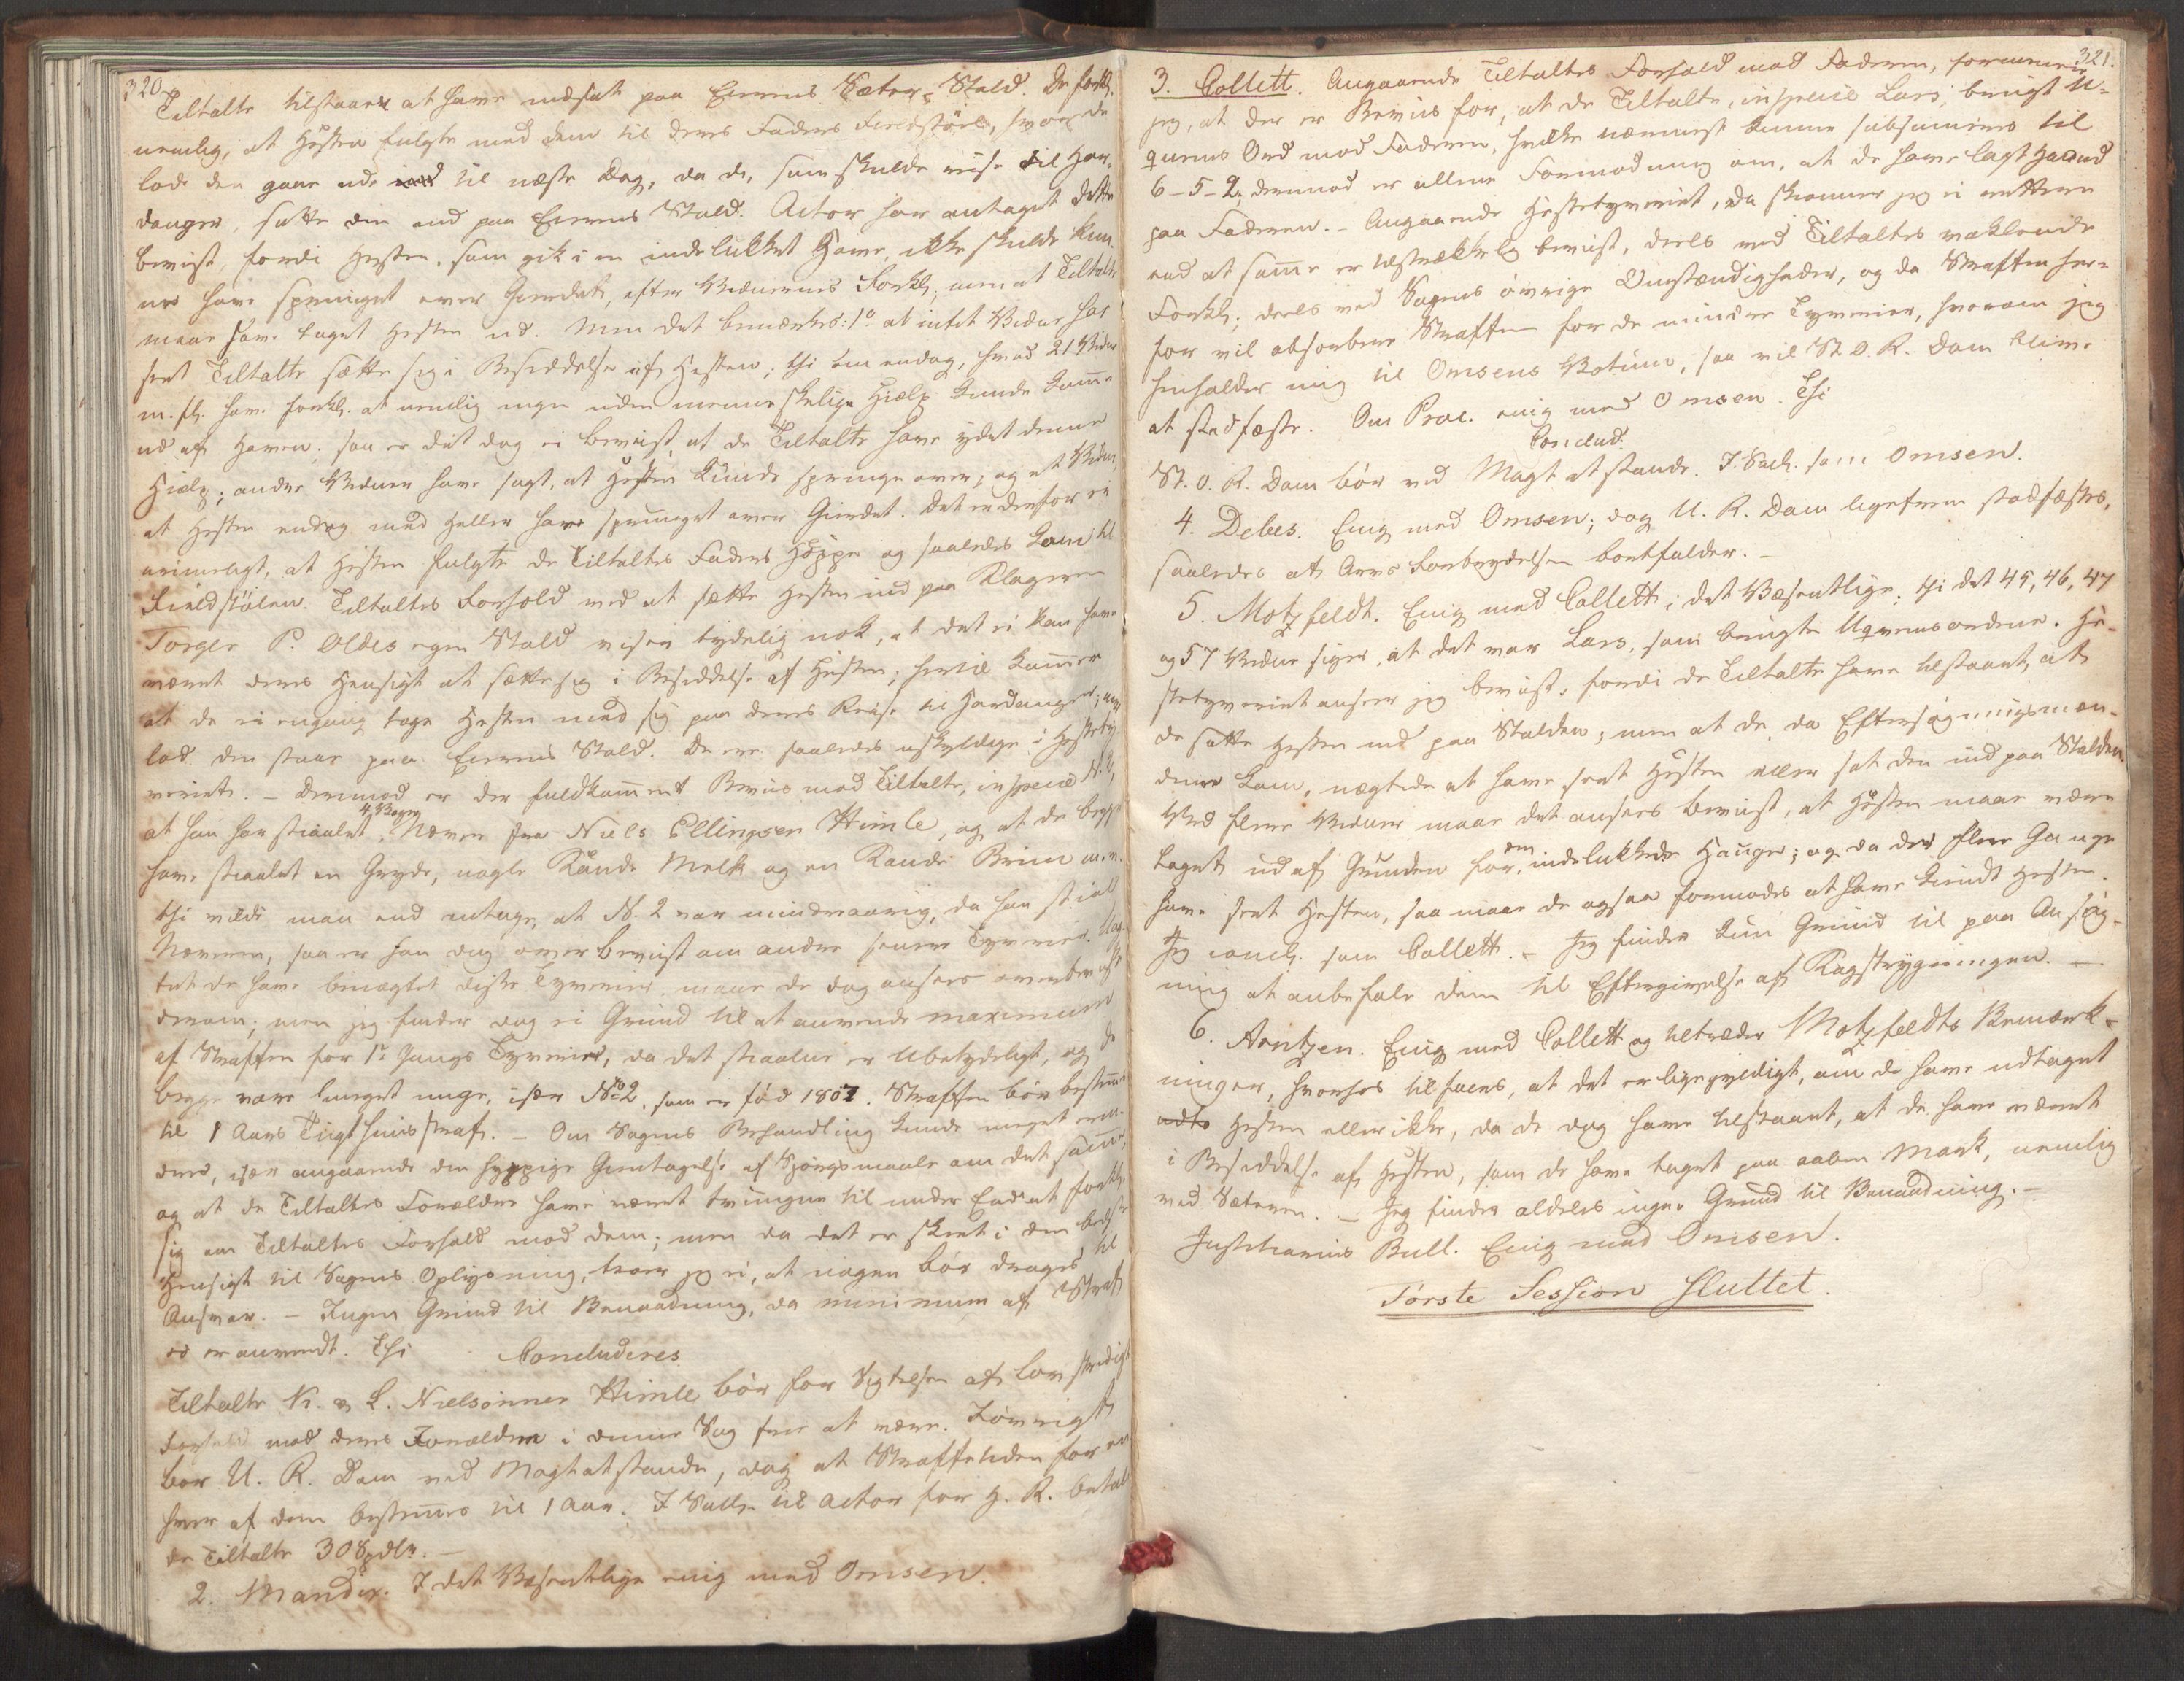 320
Tiltalte tilstaaer at have indsat paa Eierens Sæter-Stald. De forkl.
nemlig, at Hesten fulgte med dem til deres Faders Fieldstöel, hvor de
lode den gaae ude til næste Dag, da de, som skulde reise til Har-
danger, satte den ind paa Eierens Stald. Actor har antaget dette
bevist, fordi Hesten, som gik i en indelukket Have, ikke skulde kun-
ne have sprunget over Gierdet, efter Vidnernes Forkl., men at Tiltalte
maae have taget Hesten ud. Men det bemærkes: 1º at intet Vidne har
seet Tiltalte sætte sig i Besiddelse af Hesten; thi om endog, hvad 21 Vidne
m. fl. have forkl. at nemlig ingen uden menneskelige Hielp kunde komme
ud af Haven, saa er det dog ei bevist, at de Tiltalte have ydet denne
Hielp; andre Vidner have sagt, at Hesten kunde springe over, og et Vidne,
at Hesten endog med Helder have sprunget over Gierdet. Det er derfor ei
urimeligt, at Hesten fulgte de Tiltaltes Faders Hoppe og saaledes kom til
Fieldstölen. Tiltaltes Forhold med at sætte Hesten ind paa Klageren
Torger P. Oldes egen Stald viser tydelig nok, at det ei kan have
været deres Hensigt at sætte sig i Besiddelse af Hesten; hertil kommer
at de ei engang toge Hesten med sig paa deres Reise til Hardanger, men
lod den staae paa Eierens Stald. De ere saaledes uskyldige i Hestety-
veriet. - Derimod er der fuldkomment Beviis mod Tiltalte, in specie N. 2,
at han har stiaalet 4 Bøger Næver fra Niels Ellingsen Himle, og at de begge
have stiaalet en Gryde, nogle Kande Melk og en Kande Brim m. m.
thi vilde man end antage, at N. 2 var mindreaarig, da han stial
Næveren, saa er han dog overbeviist om andre senere Tyverier. Uag-
tet de have benægtet disse Tyverier, maae de dog ansees overbeviste
derom; men jeg finder dog ei Grund til at anvende maximum
af Straffen for 1ste Gangs Tyverier, da det stiaalne er ubetydeligt, og de
begge vare meget unge, især No 2, som er fød 1807. Straffen bør bestemmes
til 1 Aars Tugthuusstraf. - Om Sagens Behandling kunde meget erin-
dres, især angaaende den hyppige Gientagelse af Spörgsmaale om det samme,
og at de Tiltaltes Forældre have været tvungne til under Eed at forkl.
sig om Tiltaltes Forhold mod dem; men da det er skeet i den bedste
Hensigt til Sagens Oplysning, troer jeg ei, at nogen bör drages til
Ansvar. - Ingen Grund til Benaadning, da minimum af Straf
er anvendt. Thi
Concluderes
Tiltalte N. & L. Nielsönner Himle bör for Sigtelsen af lovstridigt
Forhold mod deres Forældre i denne Sag frie at være. Iövrigt
bør U. R. Dom ved Magt at stande, dog at Straffetiden for en
hver af dem bestemmes til 1 Aar. I Sallr. til Actor for H. R. betale
de Tiltalte 30 Spdlr. -
2. Mandix. I det Væsentlige enig med Omsen.
321.
3. Collett. Angaaende Tiltaltes Forhold mod Faderen, formener
jeg, at der er Beviis for, at de Tiltalte, in specie Lars, brugt U-
qvems Ord mod Faderen, hvilke nærmest kunne subsumeres til
6-5-2; derimod er allene Formodning om, at de have lagt Haand
paa Faderen. - Angaaende Hestetyveriet, da skiønner jeg ei rettere
end at samme er tilstrækkelig beviist, deels ved Tiltaltes vaklende
Forkl., deels ved Sagens övrige Omstændigheder, og da Straffen her-
for vil absorbere Straffen for de mindre Tyverier, hvorom jeg
henholder mig til Omsens Votum, saa vil St. O. R. Dom blive
at stadfæste. Om Proc. enig med Omsen. Thi
Conclud.
St. O. R. Dom bör ved Magt at stande. I Sall. som Omsen.
4. Debes. Enig med Omsen; dog U. R. Dom ligefrem stadfæstes,
saaledes at Arvs Forbrydelsen bortfalder. -
5. Motzfeldt. Enig med Collett i det Væsentlige; thi det 45, 46, 47
og 57 Vidne siger, at det var Lars, som brugte Uqvemsordene. He-
stetyveriet anseer jeg beviist, fordi de Tiltalte have tilstaaet, at
de satte Hesten ind paa Stalden, men at de, da Eftersøgningsmæn-
dene kom, nægtede at have seet Hesten eller sat den ind paa Stalden
Ved flere Vidner maae det ansees beviist, at Hesten maae være
taget ud af Grinden for den indelukkede Hauge; og da de flere Gange
have seet Hesten, saa maae de ogsaa formodes at have kiendt Hesten.
Jeg concl. som Collett. - Jeg finder kun Grund til paa Ansög-
ning at anbefale dem til Eftergivelse af Kagstrygningen. -
6. Arntzen. Enig med Collett og tiltræder Motzfeldts Bemærk-
ninger, hvorhos tilføies, at det er ligegyldigt, om de have udtaget
Hesten eller ikke, da de dog have tilstaaet, at de have været
i Besiddelse af Hesten, som de have taget paa aaben Mark, nemlig
ved Sæteren. - Jeg finder aldeles ingen Grund til Benaadning. -
Justitiarius Bull. Enig med Omsen.
Förste Session Sluttet.